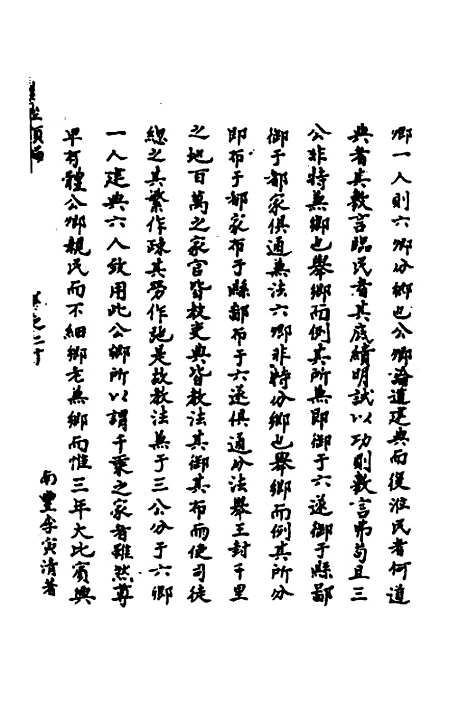 鄉一人則六鄉分鄉也公鄉論道建典而從涖民者何道
典者其敷言臨民者其底績明試以功則敷言弗苟且三
公非特兼鄉也舉鄉而例其所兼即御于六遂御于縣鄙
御于都家俱通兼法六鄉非特分鄉也舉鄉而例其所分
即布于都家布于縣鄙布于六遂俱通分法舉王封千里
之地百萬之家官皆教吏典皆教法其御其布而使司徒
總之其繁作疎其勞作逸是故教法兼于三公分于六鄉
一人建典六人致用此公鄉所以謂千乘之家者雖然尊
卑有體公鄉親民而不細鄉老兼鄉而惟三年大比賓興
南豐李寅清著